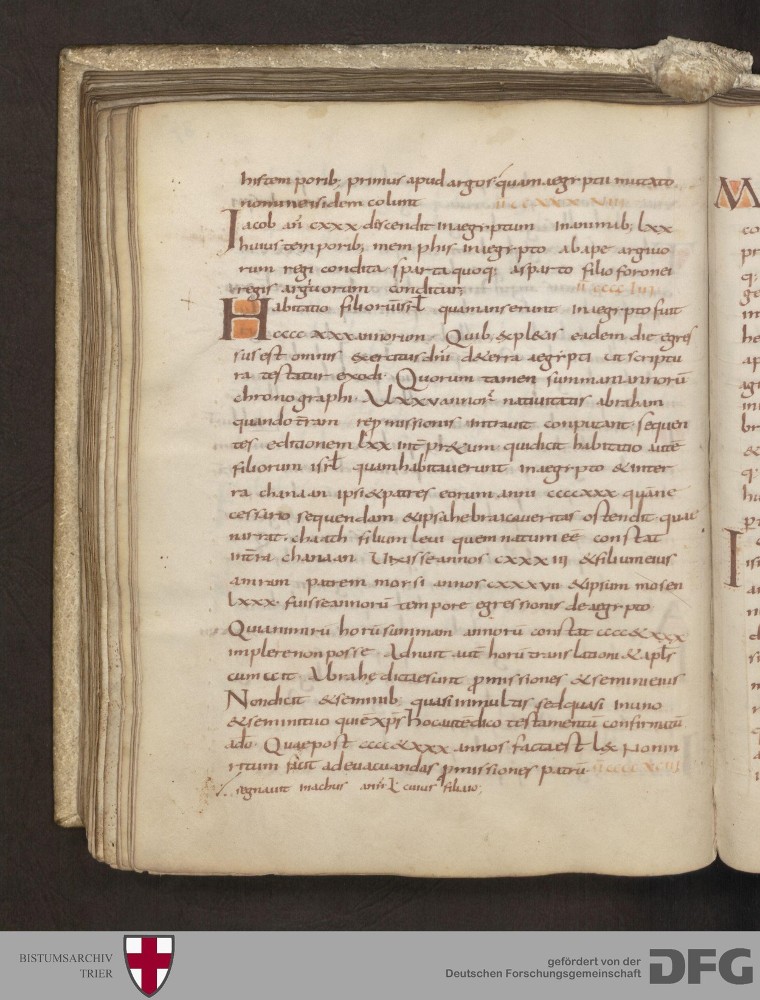 his temporib; primus apud argos quam aegyptii mutato
nomine isidem colunt
Iacob an̄ cxxx discendit in aegyptum in animab; lxx
huius temporib; memphis in aegypto ab ape argiuo
rum regi condita sparta quoq; a sparto filio foronei
regis arguorum conditur; ii cccc iiii
Habitatio filiorū isr̄l qua manserunt in aegypto fuit
cccc xxx annorum. Quib; expletis eadem die egres
sus est omnis exercitus dn̄i de terra aegypti ut scriptu
ra testatur exodi. Quorum tamen summam annorū
chronographi A lxxv anno natiuitatis abraham
quando terram repmissionis intrauit computant sequen
tes editionem lxx int̄pretum quidicit habitatio autē
filiorum isr̄l quam habitauerunt in aegypto & in ter
ra chanaan ipsi & patres eorum anni ccccxxx quā ne
cessario sequendam & ipsa hebraica ueritas ostendit quae
narrat chaath filium leui quem natum eē constat
in tr̄a chanaan Uixisse annos cxxxiii & filium eius
amram patrem morsi annos cxxxvii & ipsum mosen
lxxx. fuisse annorū tempore egressionis de aegypto
Quia nimirū horū summam annorū constat cccc & xxx
implere non posse Adnuit autē horū translationi & apl̄s
cum ait Abrahe dictae sunt promissiones & semini eius
Non dicit & seminib; quasi in multis sed quasi in uno
& semini tuo qui ē xp̄s hoc autē dico testamentū confirmatū
a dō. Quae post cccc & xxx annos facta est lex non in
ritum facit ad euacuandas promissiones patrū ii cccc xciii
regnauit inachus an̄ l cuius filia io;
BISTUMSARCHIV
TRIER
gefördert von der
Deutschen Forschungsgemeinschaft
DFG